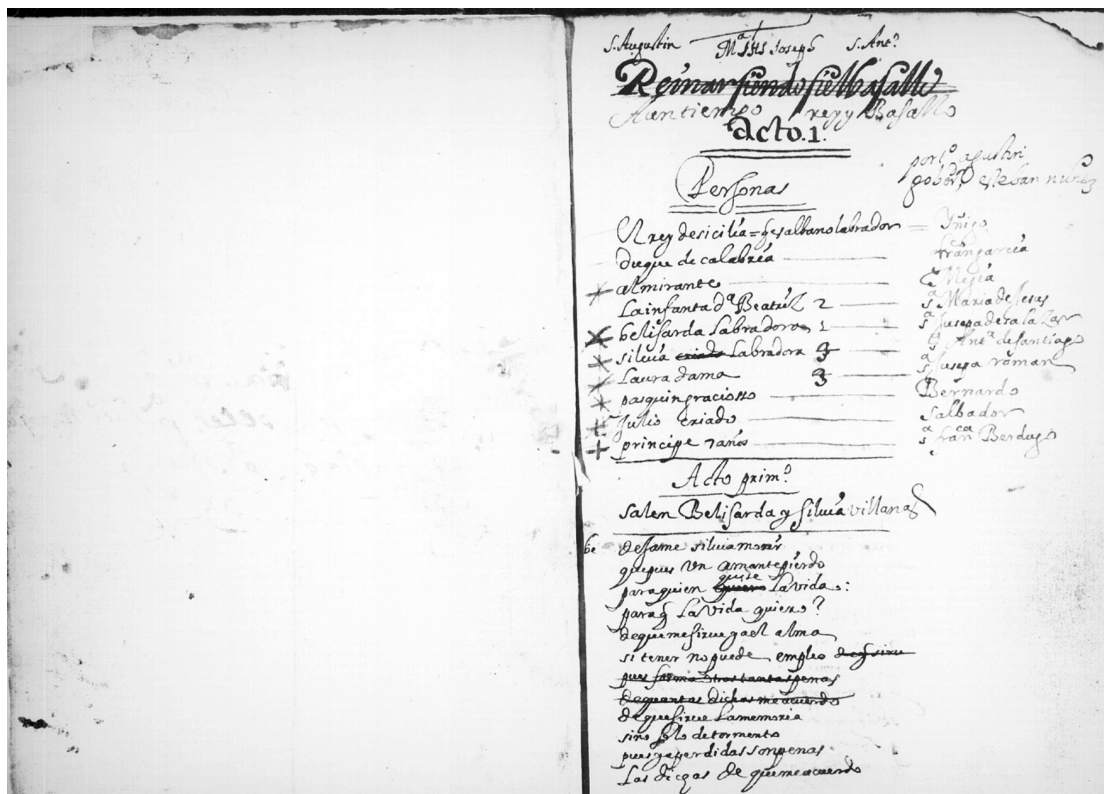 S. Augustin Mª JHS Joseph S. Antº
Reinar siendo fiel basallo
A un tiempo rey y Basallo
acto. 1.
por tº agustin
gober esteban nuñez
Personas
El rey de sicilia = gesalbano labrador = Yñigo
duque de calabria fran garcia
almirante Mejia
La infanta dª Beatriz 2 sª Maria de Jesus
belisarda Labradora 1
silvia criada Labradora 3 sª Antª de santiago
Laura dama 3 sª Jusepa roman
pasquin graciosso Bernardo
Julio criado Salbador
principe 7 años sª franca Berdugo
Acto primº
salen Belisarda y silvia villanas
be dejame silvia morir
que pues un amante pierdo
para quien quiero quise la vida:
para q La vida quiero?
de que me sirve ya el alma
si tener no puede empleo
pues forma otras tantas penas
de quantas dichas me acuerdo
de que sirve La memoria
sino solo de tormento
pues ya perdidas son penas
Las dichas de que me acuerdo